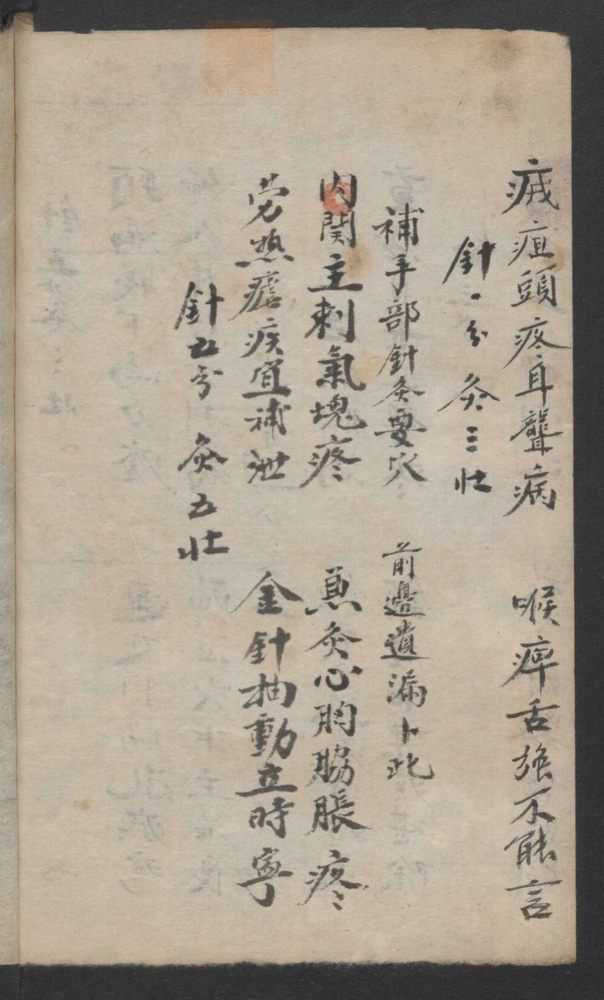 疽頭疼耳聾病 喉痺舌強不能言
針一分 灸三壯
補手部針灸要穴 前邊遺漏卜此
内関主刺氣塊疼 兼灸心胸脇脹疼
劳热瘧疾宜補泄 金針抽動立時寧
針五分 灸五壯